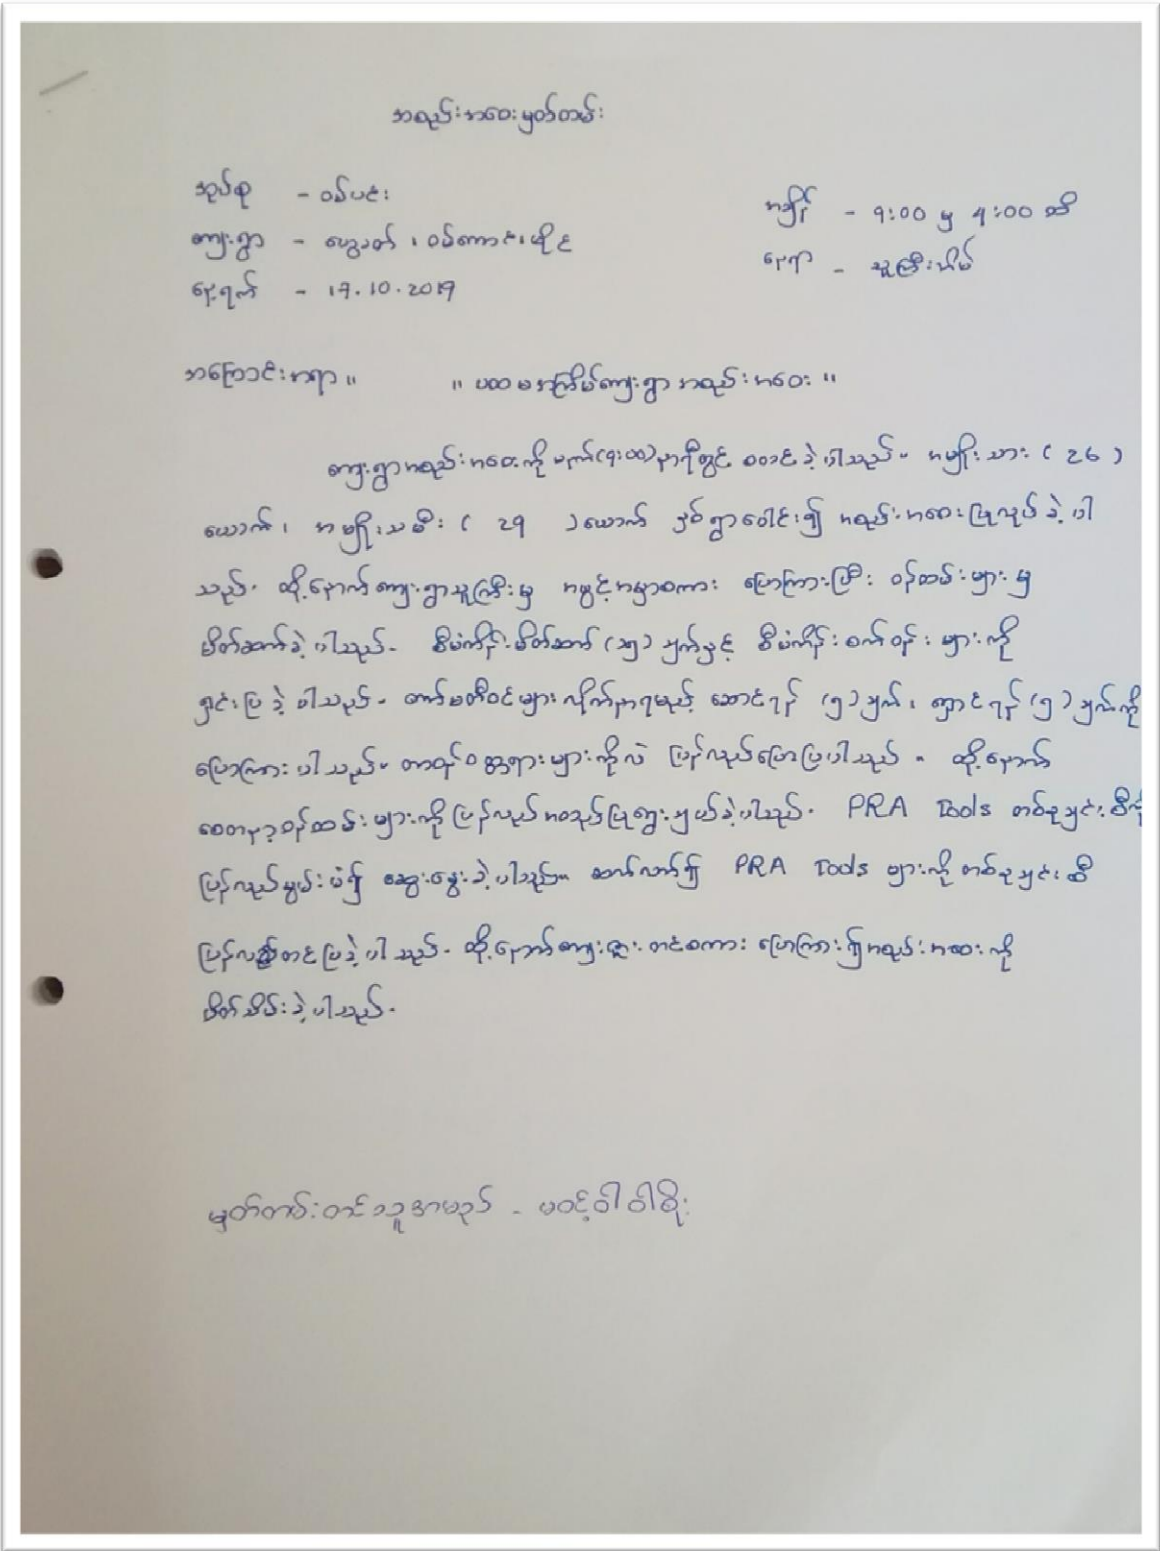 အစည်းအဝေးမှတ်တမ်း
အုပ်စု - ဝမ်ပင်း
အချိန် - 9:00 မှ 4:00 ထိ
ကျေးရွာ - ဝမ်ကောင်းမိုင်
နေရာ - သူကြီးအိမ်
နေ့ရက် - 17.10.2019
အကြောင်းအရာ။ " ပထမအကြိမ်ကျေးရွာအစည်းအဝေး "
ကျေးရွာအစည်းအဝေးကို မနက် နာရီတွင် စတင်ခဲ့ပါသည်။ အမျိုးသား ( 26 )
ယောက်၊ အမျိုးသမီး ( 29 ) ယောက် နှစ်ရွာပေါင်း၍ အစည်းအဝေးပြုလုပ်ခဲ့ပါ
သည်။ ထို့နောက်ကျေးရွာသူကြီးမှ အဖွင့်အမှာစကား ပြောကြားပြီး ဝန်ထမ်းများမှ
မိတ်ဆက်ခဲ့ပါသည်။ စီမံကိန်းမိတ်ဆက် (၁၅) ချက်နှင့် စီမံကိန်းစက်ဝန်းများကို
ရှင်းပြခဲ့ပါသည်။ ကော်မတီဝင်များလိုက်နာရမည့် ဆောင်ရန် (၅) ချက်၊ ရှောင်ရန် (၅) ချက်ကို
ပြောကြားပါသည်။ တာဝန်ဝတ္တရားများကိုလဲ ပြန်လည်ပြောပြပါသည်။ ထို့နောက်
စေတနာ့ဝန်ထမ်းများကို ပြန်လည်အတည်ပြုရွေးချယ်ခဲ့ပါသည်။ PRA Tools တစ်ခုချင်းစီကို
ပြန်လည်မွမ်းမံ၍ ဆွေးနွေးခဲ့ပါသည်။ ဆက်လက်၍ PRA Tools များကို တစ်ခုချင်းစီ
ပြန်လည်တင်ပြခဲ့ပါသည်။ ထို့နောက်ကျေးဇူးတင်စကား ပြောကြား၍ အစည်းအဝေးကို
ပိတ်သိမ်းခဲ့ပါသည်။
မှတ်တမ်းတင်သူအမည် - မဝင့်ဝါဝါစိုး